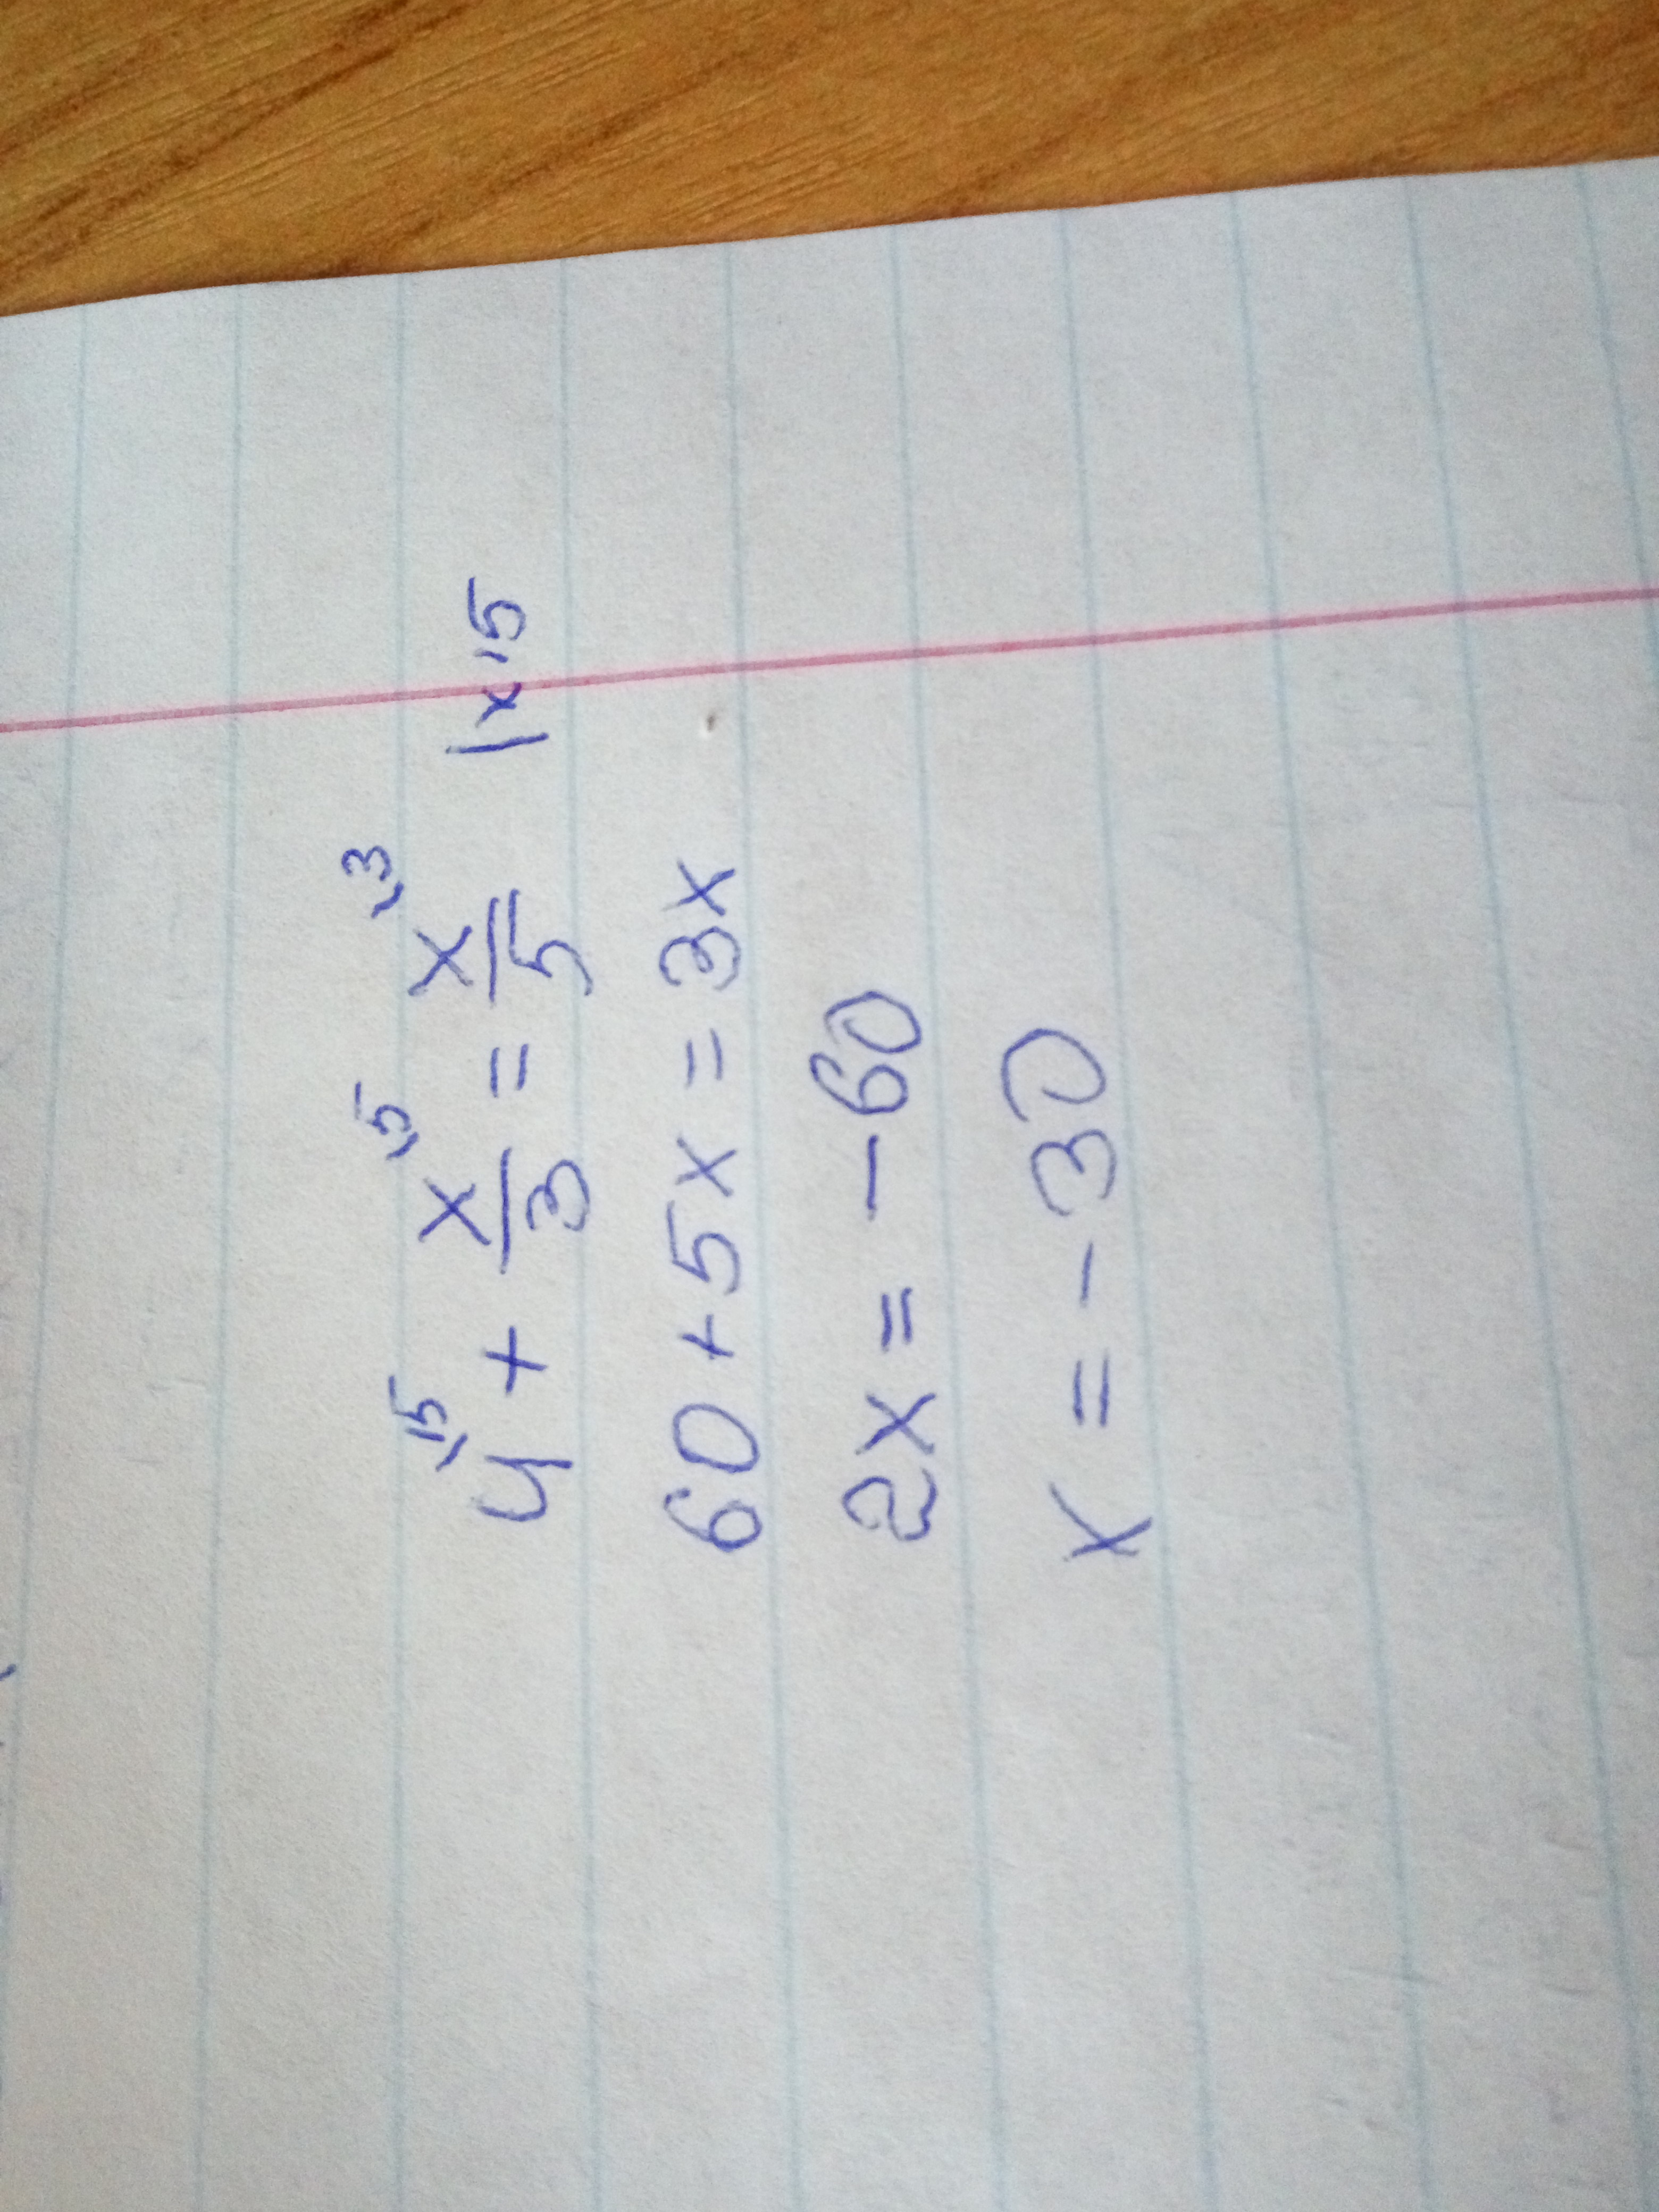 4^{\15} + \frac{x}{3}^{\5} = \frac{x}{5}^{\3} |x15
60 + 5x = 3x
2x = -60
x = -30